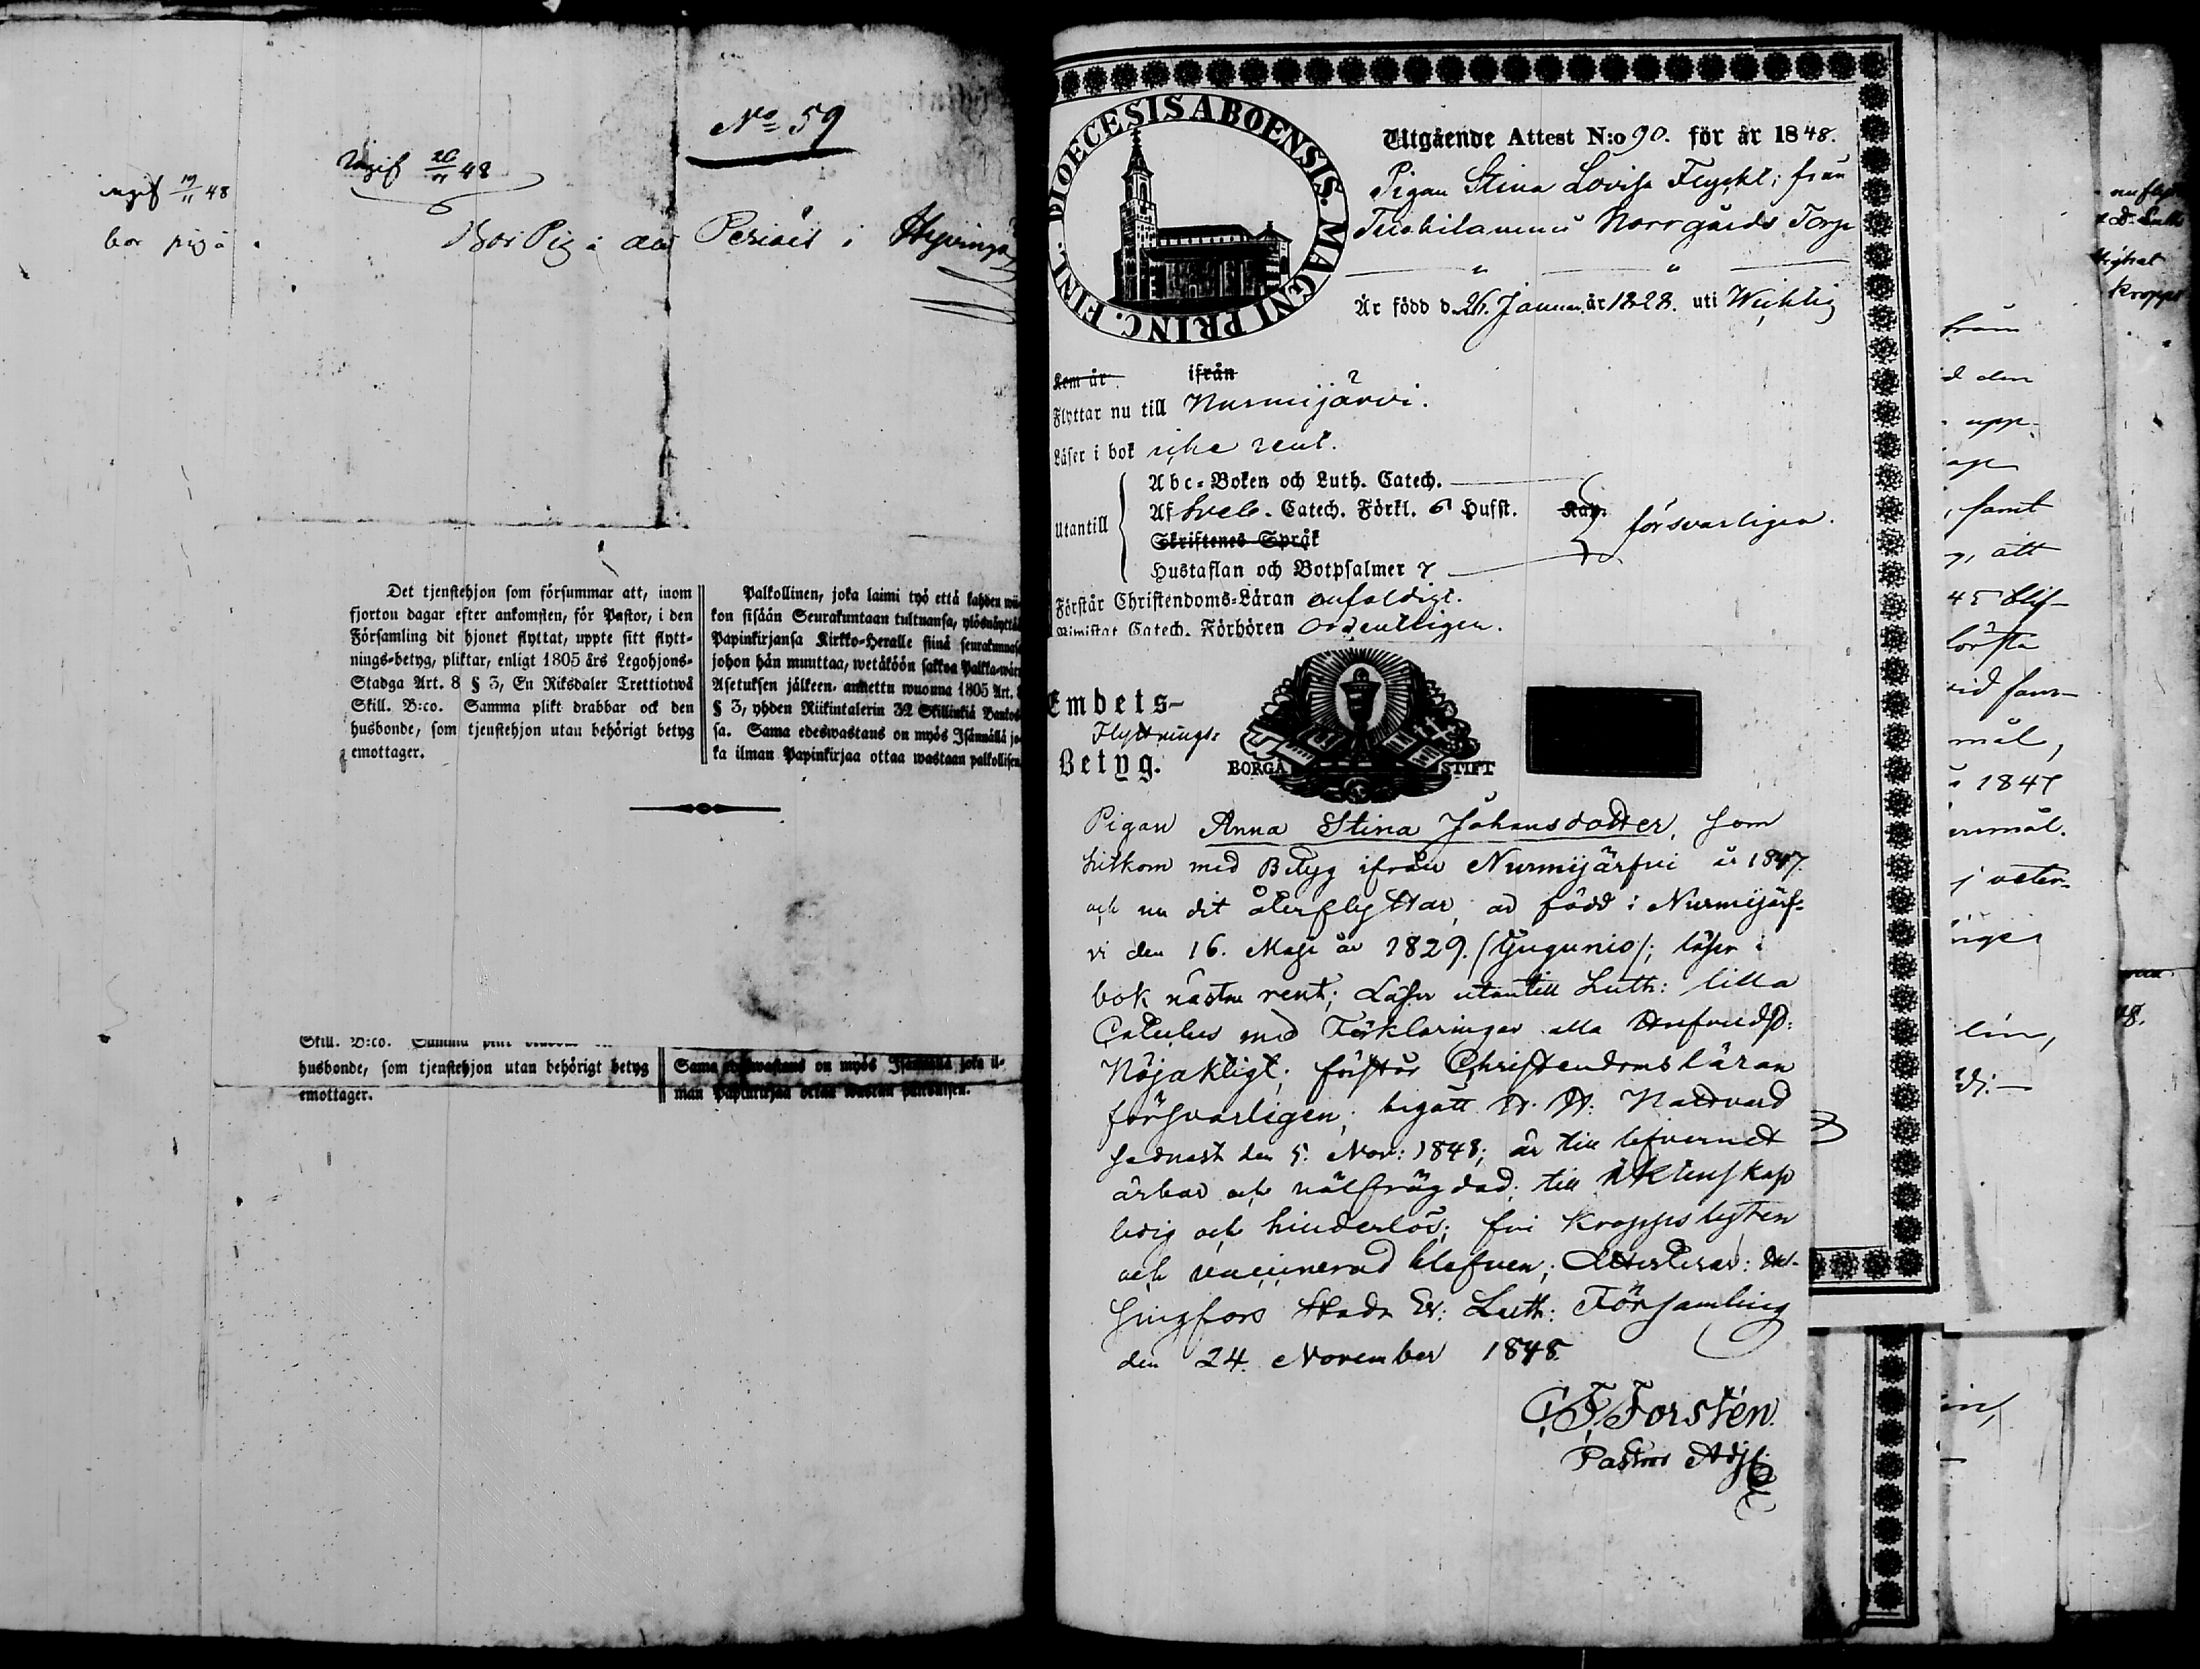 No 59
Ingif 20/11 48
ingif 19/11 48
bor piga
Bor Piga
i Hyvinge
Det tjenstehjon som försummar att, inom
fjorton dagar efter ankomsten, för Pastor, i den
Församling dit hjonet flyttat, uppte sitt flytt-
nings-betyg, pliktar, enligt 1805 års Legohjons-
Stadga Art. 8 § 3, En Riksdaler Trettiotwå
Skill. B:co. Samma plikt drabbar ock den
husbonde, som tjenstehjon utan behörigt betyg
emottager.
Palkollinen, joka laimi työ että kahden wii-
kon sisään Seurakuntaan tultuansa, ylösnäyttää
Papinkirjansa Kirkko-Heralle siinä seurakunnasa
johon hän muuttaa, wetäköön sakkoa Palkka-wäen
Asetuksen jälkeen, annettu wuonna 1805 Art. 8
§ 3, yhden Riikintalerin 32 Skillinkiä Bankos-
sa. Sama edeswastaus on myös Isännällä jo-
ka ilman Papinkirjaa ottaa wastaan palkollisen.
Skill. B:co. Samma plikt
husbonde, som tjenstehjon utan behörigt betyg
emottager.
Sama edeswastaus on myös Isännällä joka il-
man Papinkirjaa ottaa wastaan palkollisen.
DIOECESIS ABOENSIS. MAGNI PRINC. FINL.
Utgående Attest N:o 90. för år 1848.
Pigan Stina Lovisa Flyckt; från
Norrgårds Torp
Är född d. 26. Januari år 1828. uti Wichtis
Kom år ifrån
Flyttar nu till Nurmijärvi.
Läser i bok icke rent.
Utantill
Abc-Boken och Luth. Catech.
Af Sveb. Catech. Förkl. 6 Hufst. Kap.
Skriftenes Språk
Hustaflan och Botpsalmer 7
försvarligen.
Förstår Christendoms-Läran enfaldigt.
Bimistat Catech. Förhören Ordentligen.
Embets-
Flyttnings-
Betyg.
BORGÅ STIFT
Pigan Anna Stina Johansdotter, som
hitkom med Betyg ifrån Nurmijärfvi år 1847.
och nu dit återflyttar, är född i Nurmijärf-
vi den 16. Maji år 1829. (Gugunio); läser i
bok nästan rent; Läser utantill Luth: lilla
Cateches med Förklaringar alla Hufvudst:
Nöjaktigt; förstår Christendomsläran
försvarligen; begått H. H: Nattvard
sednast den 5. Nov: 1848; är till lefvernet
ärbar och välfrägdad; till äktenskap
ledig och hinderlös; fri kroppslyten
och vaccinerad blefven; Attesterar: Hel-
singfors Stads Ev: Luth: Församling
den 24. November 1848.
C. F. Forstén.
Pastors Adj:
kropps
från
d den
upp-
samt
att
45 blif-
första
mål,
1847
lin,
48.